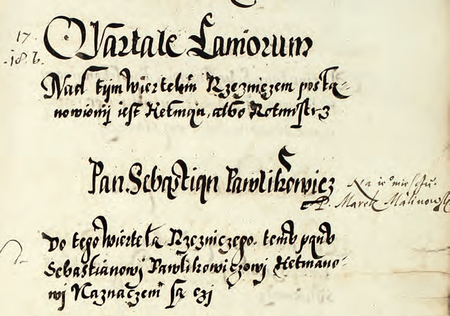 17.
Quartale Laniorum
18 b.
Nad tym wiertelem Rzezniczem posta-
nowiony iest Hetman, albo Rotmistrz
Pan Sebastian Pawlikowicz
Na ie° mieiscu.
P. Marek Malinowski
Do tego wiertela Rzezniczego, temu panu
Sebastianowi Pawlikowiczowi Hetmano-
wi Naznaczeni są czi